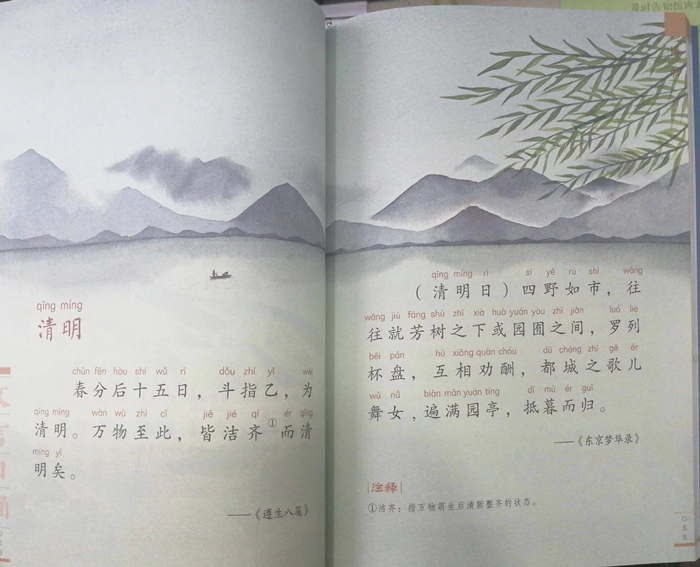 qīng míng
清明
chūn fēn hòu shí wǔ rì dǒu zhǐ yǐ wéi
春分后十五日，斗指乙，为
qīng míng wàn wù zhì cǐ jiē jié qí ér qīng
清明。万物至此，皆洁齐①而清
míng yǐ
明矣。
——《遵生八笺》
qīng míng rì sì yě rú shì wǎng
（清明日）四野如市，往
wǎng jiù fāng shù zhī xià huò yuán yòu zhī jiān luó liè
往就芳树之下或园囿之间，罗列
bēi pán hù xiāng quàn chóu dū chéng zhī gē ér
杯盘，互相劝酬，都城之歌儿
wǔ nǚ biàn mǎn yuán tíng dǐ mù ér guī
舞女，遍满园亭，抵暮而归。
——《东京梦华录》
注释
①洁齐：指万物萌生后清新整齐的状态。